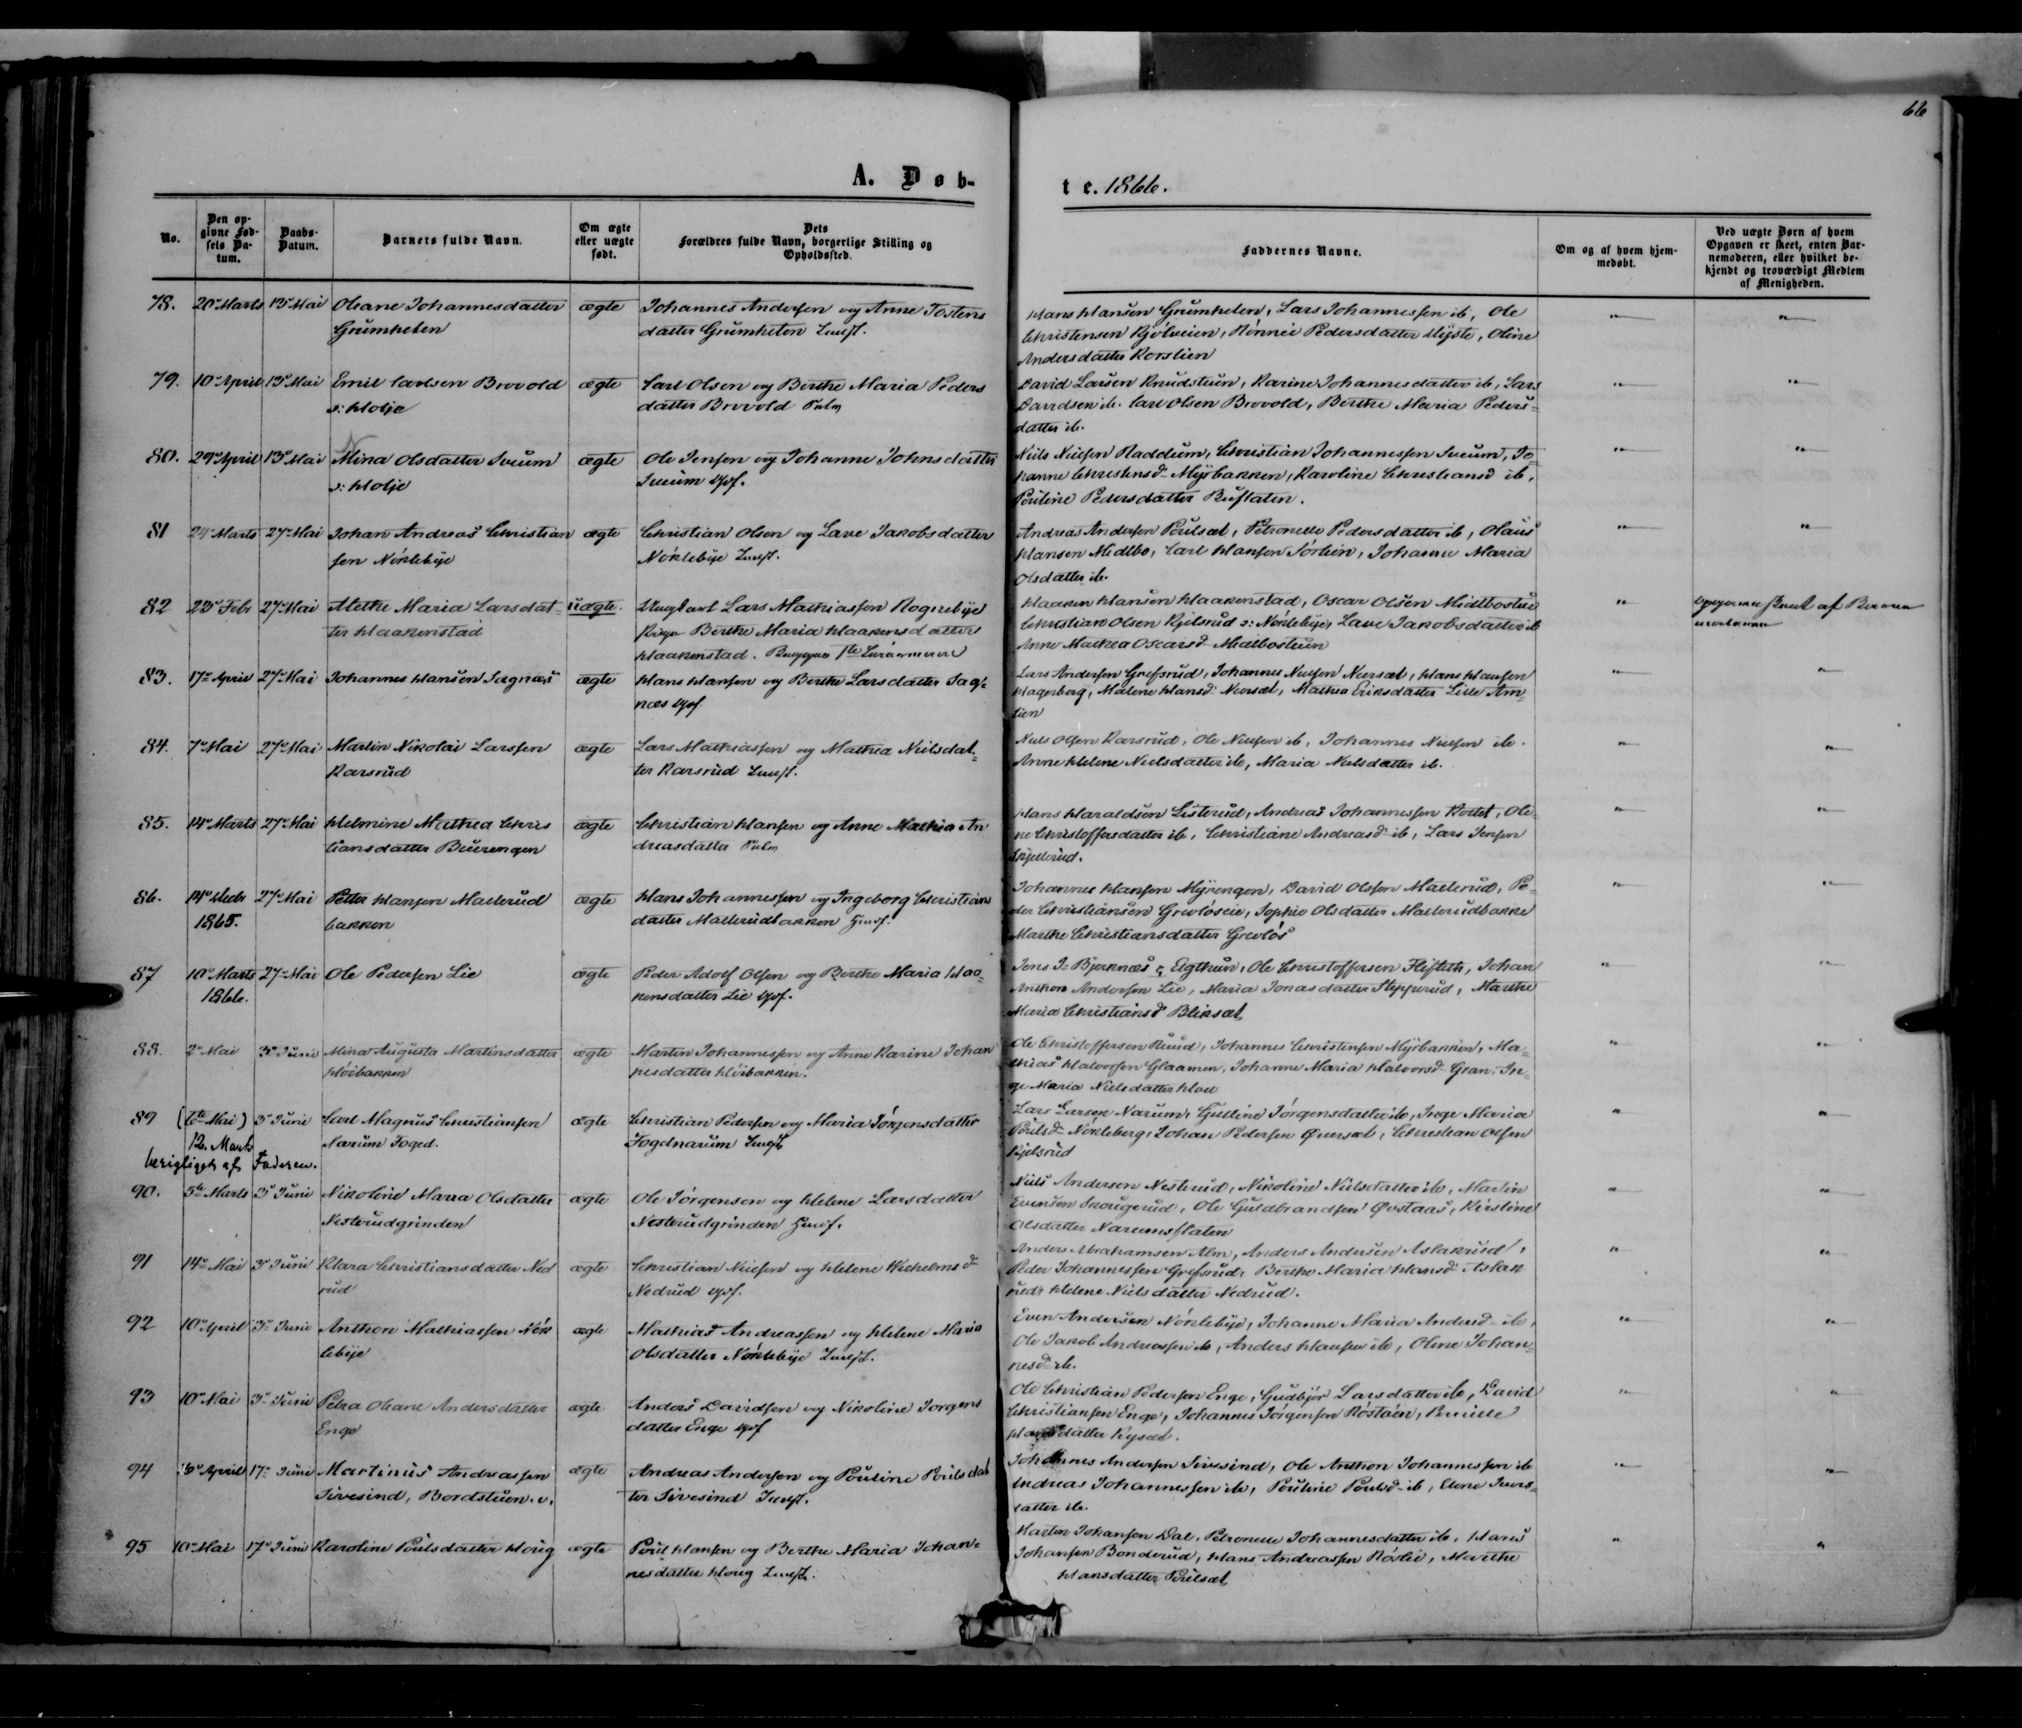 66
A. Døb-
te. 1866.
No.
Den op-
givne Fød-
sels Da-
tum.
Daabs-
Datum.
Barnets fulde Navn.
Om ægte
eller uægte
født.
Dets
Forældres fulde Navn, borgerlige Stilling og
Opholdssted.
Faddernes Navne.
Om og af hvem hjem-
medøbt.
Ved uægte Børn af hvem
Opgaven er skeet, enten Bar-
nemoderen, eller hvilket be-
kjendt og troværdigt Medlem
af Menigheden.
78. 20 Marts 13 Mai Oleane Johannesdatter ægte Johannes Andersen og Anne Tostens
Grumheten datter Grumheten
Hans Hansen Grumheten, Lars Johannessen ib, Ole
Christensen Kjølveien, Rønnei Pedersdatter Myste, Oline
Andersdatter Korslien
79. 10 April 13 Mai Emil Carlsen Brovold ægte Carl Olsen og Berthe Maria Peders
v: Holje datter Brovold
David Larsen Knudstuen, Karine Johannesdatter ib, Lars
Davidsen ib. Carl Olsen Brovold, Berthe Maria Peders-
datter ib.
80. 29 April 13 Mai Mina Olsdatter Sveum ægte Ole Jensen og Johanne Johnsdatter
v: Holje Sveum
Niels Nielsen Raddum, Christian Johannessen Sveum, Jo-
hanne Christensd. Myrbakken, Karoline Christiansd ib,
Pouline Pedersdatter
81 24 Marts 27 Mai Johan Andreas Christian ægte Christian Olsen og Lave Jakobsdatter
sen Nøklebye Nøklebye
Andreas Andersen Poulsæt, Petronelle Pedersdatter ib, Olaus
Hansen Midtbø, Carl Hansen Sørlien, Johanne Maria
Olsdatter ib.
82 23 Febr 27 Mai Methe Maria Larsdat- uægte. Ungkarl Lars Mathiassen Rognebye
ter Haakenstad Pige Berthe Maria Haakensdatter
Haakenstad. Begges 1ste
Haaken Hansen Haakenstad, Oscar Olsen Midtbøstue
Christian Olsen Kjelsrud v: Nøklebye, Lave Jakobsdatter ib
Anne Mathea Oscarsd. Midtbostuen
skeet af
83. 17 April 27 Mai Johannes Hansen Sagnæs ægte Hans Hansen og Berthe Larsdatter Sag-
næs
Lars Andersen Grefsrud, Johannes Nielsen Neersæt, Hans Hansen
Hagenberg, Malene Hansd. Neersæt, Mathea Eriksdatter Lille Am-
lien
84. 7 Mai 27 Mai Martin Nikolai Larssen ægte Lars Mathiassen og Mathea Nielsdat-
Karsrud ter Karsrud
Niels Olsen Karsrud, Ole Nielsen ib, Johannes Nielsen ib.
Anne Helene Nielsdatter ib, Maria Nielsdatter ib.
85. 14 Marts 27 Mai Helmine Mathea Chris ægte Christian Hansen og Anne Mathia An
tiansdatter Buerengen dreasdatter
Hans Haraldsen Listerud, Andreas Johannessen Kortet, Ole
ne Christoffersdatter ib, Christiane Andreasd ib, Lars Jensen
86. 27 Mai Petter Hansen Mælerud ægte Hans Johannessen og Ingeborg Christians
1865. bakken datter Mælerudbakken
Johannes Hansen Myrengen, David Olssen Mælerud, Pe-
der Christiansen Grevløseie, Sophie Olsdatter Mælerudbakke
Marthe Christiansdatter Grevløs
87 10 Marts 27 Mai Ole Pedersen Lie ægte Peder Adolf Olsen og Berthe Maria Haa-
1866. kensdatter Lie
Jens Bjerknæs Ole Christoffersen Johan
Anthon Andersen Lie, Maria Jonasdatter Stepperud, Marthe
Maria Christiansd Bliksæt
88. 2 Mai 3 Juni Mina Augusta Martinsdatter ægte Martin Johannessen og Anne Karine Johan
Høibakken nesdatter Høibakken.
Ole Christoffersen Ruud, Johannes Christensen Myrbakken, Ma-
thias Halvorsen Glaamen, Johanne Maria Halvorsd. Gran, In-
ge Maria Nielsdatter
89 (6te Mai) 3 Juni Carl Magnus Christiansen ægte Christian Pedersen og Maria Jørgensdatter
12. Marts Narum Foged. Fogdnarum
berigtiget af Faderen.
Lars Larsen Narum, Gulline Jørgensdatter ib, Inge Maria
Poulsd. Nøkleberg, Johan Pedersen Øversæt, Christian Olsen
Kjelsrud
90. 5te Marts 3 Juni Nikoline Maria Olsdatter ægte Ole Jørgensen og Helene Larsdatter
Nesterudgrinden Nesterudgrinden
Niels Andersen Nesterud, Nikoline Nielsdatter ib, Martin
Evensen Skougerud, Ole Guldbrandsen Øvstaas, Kirstine
Olsdatter
91 14 Mai 3 Juni Klara Christiansdatter Ned ægte Christian Nielsen og Helene Wilhelmsd
rud Nedrud
Anders Abrahamsen Alm, Anders Andersen Aslakrud,
Peder Johannessen Grefsrud, Berthe Maria Hansd. Aslak
rud, Helene Nielsdatter Nedrud.
92 10 April 3 Juni Anthon Mathiassen Nøk ægte Mathias Andreassen og Helene Maria
lebye Olsdatter Nøklebye
Even Andersen Nøklebye, Johanne Maria Andersd ib,
Ole Jakob Andreassen ib, Anders Hansen ib, Oline Johan-
nesd ib.
93 10 Mai 3 Juni Petra Oleane Andersdatter ægte Anders Davidsen og Nikoline Jørgens
Enge datter Enge
Ole Christian Pedersen Enge, Gudbjør Larsdatter ib, David
Christiansen Enge, Johannes Jørgensen Røstøen, Pernille
Hansdatter
94 6 April 17 Juni Martinus Andreassen ægte Andreas Andersen og Pouline Poulsdat
Sivesind, Bordstuen. v. ter Sivesind
Johannes Andersen Sivesind, Ole Anthon Johannessen ib
Andreas Johannessen ib, Pouline Poulsd ib, Elene Ivers-
datter ib.
95 10 Mai 17 Juni Karoline Poulsdatter Houg ægte Poul Hansen og Berthe Maria Johan-
nesdatter Houg
Martin Johansen Dal, Petronelle Johannesdatter ib, Hans
Johansen Bonderud, Hans Andreassen Røslie, Marthe
Hansdatter Poulsæt